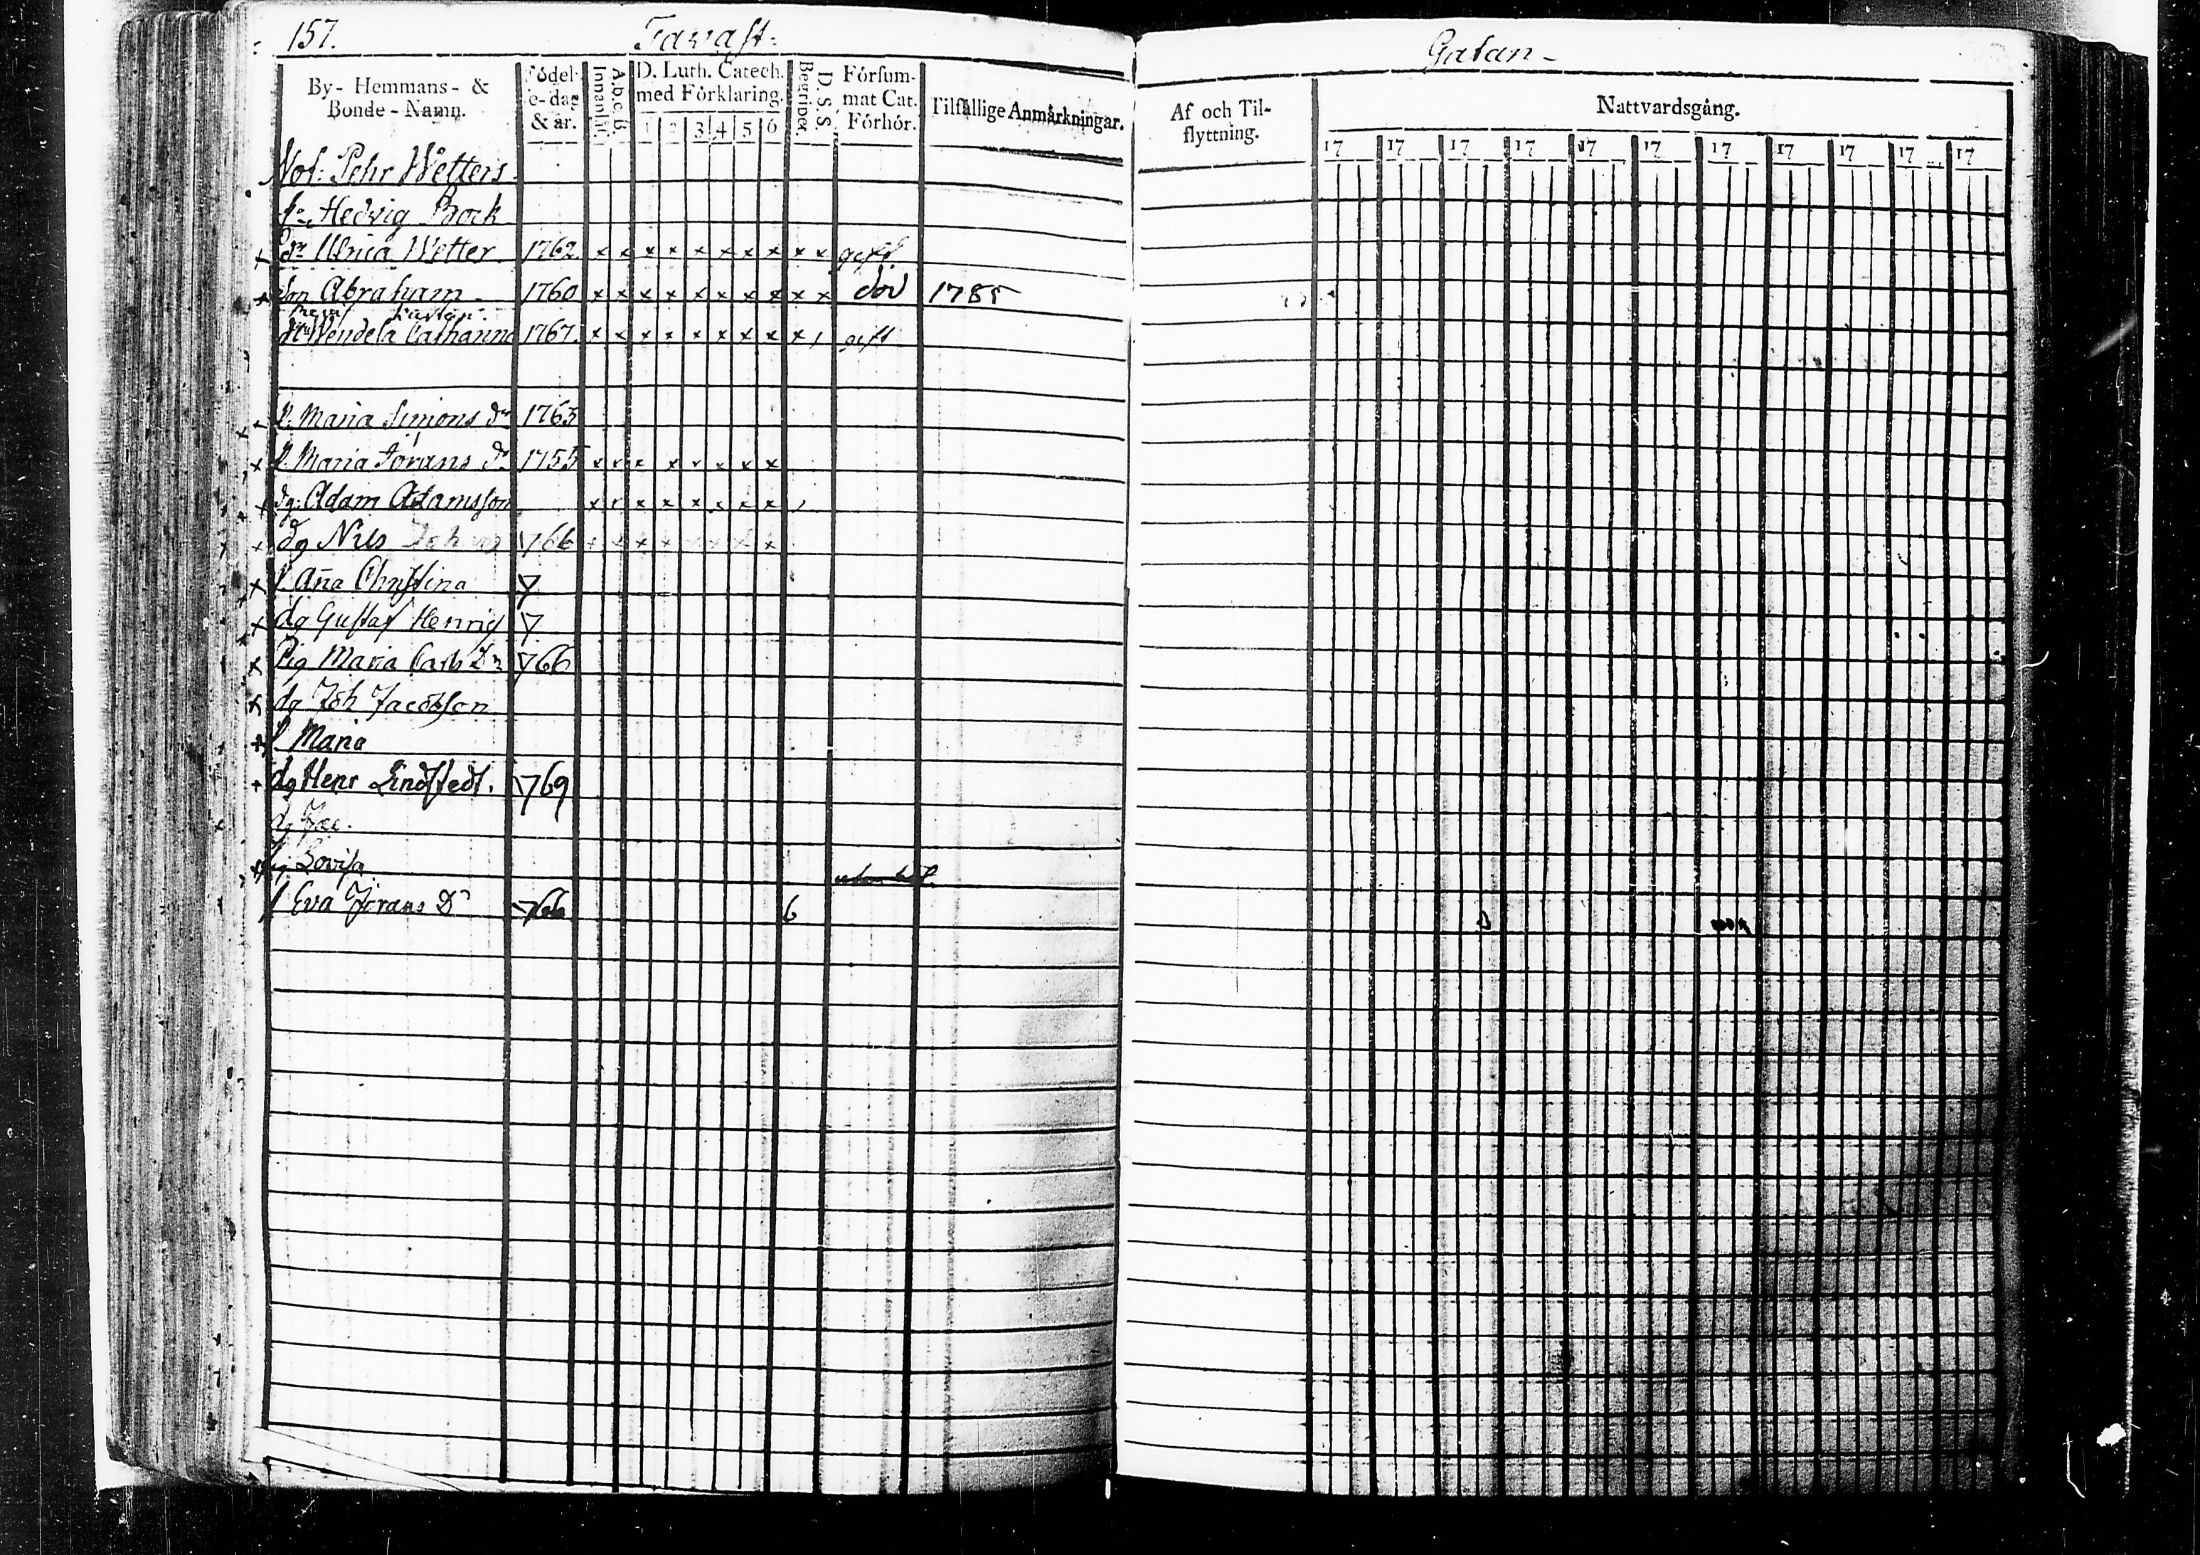 157. Tavast-
Gatan-
By- Hemmans- & Bonde-Namn.
Födel-e-dag & år.
Innanläs.
A.b.c.B.
D. Luth. Catech. med Förklaring.
1 2 3 4 5 6
Begriper.
D. S. S.
Försummat Cat. Förhör.
Tilfällige Anmärkningar.
Af och Tilflyttning.
Nattvardsgång.
17 17 17 17 17 17 17 17 17 17 17
Not: Pehr Wetters
Hedvig Brock
x dr Ulrica Wetter 1762 x x x x x x x x x x gift
x son Abraham 1760 x x x x x x x x x x död 1785
dr Wendela Catharina 1767 x x x x x x x x x gift
x P. Maria Simons dr 1763
x P. Maria Jörans dr 1755 x x x x x x x x
x dg: Adam Adamsson x x x x x x x x
x dg Nils 766 x x x x x x x x
x P. Aña Christina 7
x dg Gustaf Henrics 7
x Pig Maria Carls Dr 766
x dg Joh Jacobsson
x P Maria
dg Henr Lindstedt. 769
Lovisa
P Eva Jörans Dr 766 6